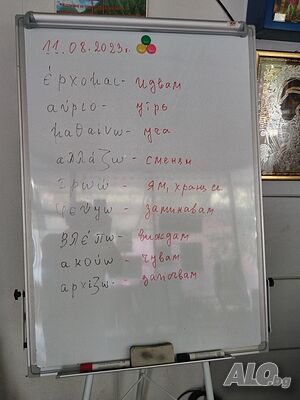 11.08.2023г.
έρχομαι - идвам
αύριο - утрь
μαθαίνω - уча
αλλάζω - сменям
τρώω - ям, храня се
φεύγω - заминавам
βλέπω - виждам
ακούω - чувам
αρχίζω - започвам
ALO.bg